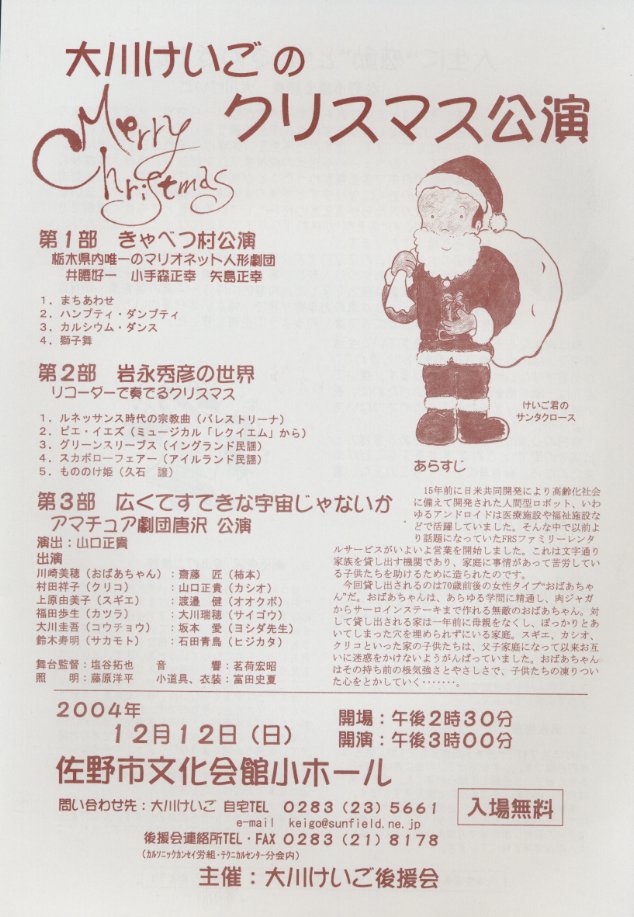 大川けいごの
Merry
Christmas
クリスマス公演
第1部　きゃべつ村公演
栃木県内唯一のマリオネット人形劇団
井腰好一　小手森正幸　矢島正幸
1．まちあわせ
2．ハンプティ・ダンプティ
3．カルシウム・ダンス
4．獅子舞
第2部　岩永秀彦の世界
リコーダーで奏でるクリスマス
1．ルネッサンス時代の宗教曲（パレストリーナ）
2．ピエ・イエズ（ミュージカル「レクイエム」から）
3．グリーンスリーブス（イングランド民謡）
4．スカボローフェアー（アイルランド民謡）
5．もののけ姫（久石　譲）
けいご君の
サンタクロース
第3部　広くてすてきな宇宙じゃないか
アマチュア劇団唐沢 公演
演出：山口正貴
出演
川崎美穂（おばあちゃん）：齋藤　匠（柿本）
村田祥子（クリコ）　：山口正貴（カシオ）
上原由美子（スギエ）　：渡邉　健（オオクボ）
福田歩生（カツラ）　：大川瑞穂（サイゴウ）
大川圭吾（コウチョウ）：坂本　愛（ヨシダ先生）
鈴木寿明（サカモト）　：石田青鳥（ヒジカタ）
舞台監督：塩谷拓也　音　　響：若荷宏昭
照　　明：藤原洋平　小道具、衣装：富田史夏
あらすじ
15年前に日米共同開発により高齢化社会
に備えて開発された人間型ロボット、いわ
ゆるアンドロイドは医療施設や福祉施設な
どで活躍していました。そんな中で以前よ
り話題になっていたFRSファミリーレンタ
ルサービスがいよいよ営業を開始しました。これは文字通り
家族を貸し出す機関であり、家庭に事情があって苦労してい
る子供たちを助けるために造られたのです。
今回貸し出されるのは70歳前後の女性タイプ“おばあちゃ
ん”だ。おばあちゃんは、あらゆる学問に精通し、肉ジャガ
からサーロインステーキまで作れる無敵のおばあちゃん。対
して貸し出される家は一年前に母親をなくし、ぽっかりとあ
いてしまった穴を埋められずにいる家庭。スギエ、カシオ、
クリコといった家の子供たちは、父子家庭になって以来お互
いに迷惑をかけないようがんばっていました。おばあちゃん
はその持ち前の根気強さとやさしさで、子供たちの凍りつい
た心をとかしていく・・・・・・・。
2004年
12月12日（日）
開場：午後2時30分
開演：午後3時00分
佐野市文化会館小ホール
問い合わせ先：大川けいご 自宅TEL　0283（23）5661
e-mail　keigo@sunfield.ne.jp
入場無料
後援会連絡所TEL・FAX 0283（21）8178
（カルソニックカンセイ労組・テクニカルセンター分会内）
主催：大川けいご後援会